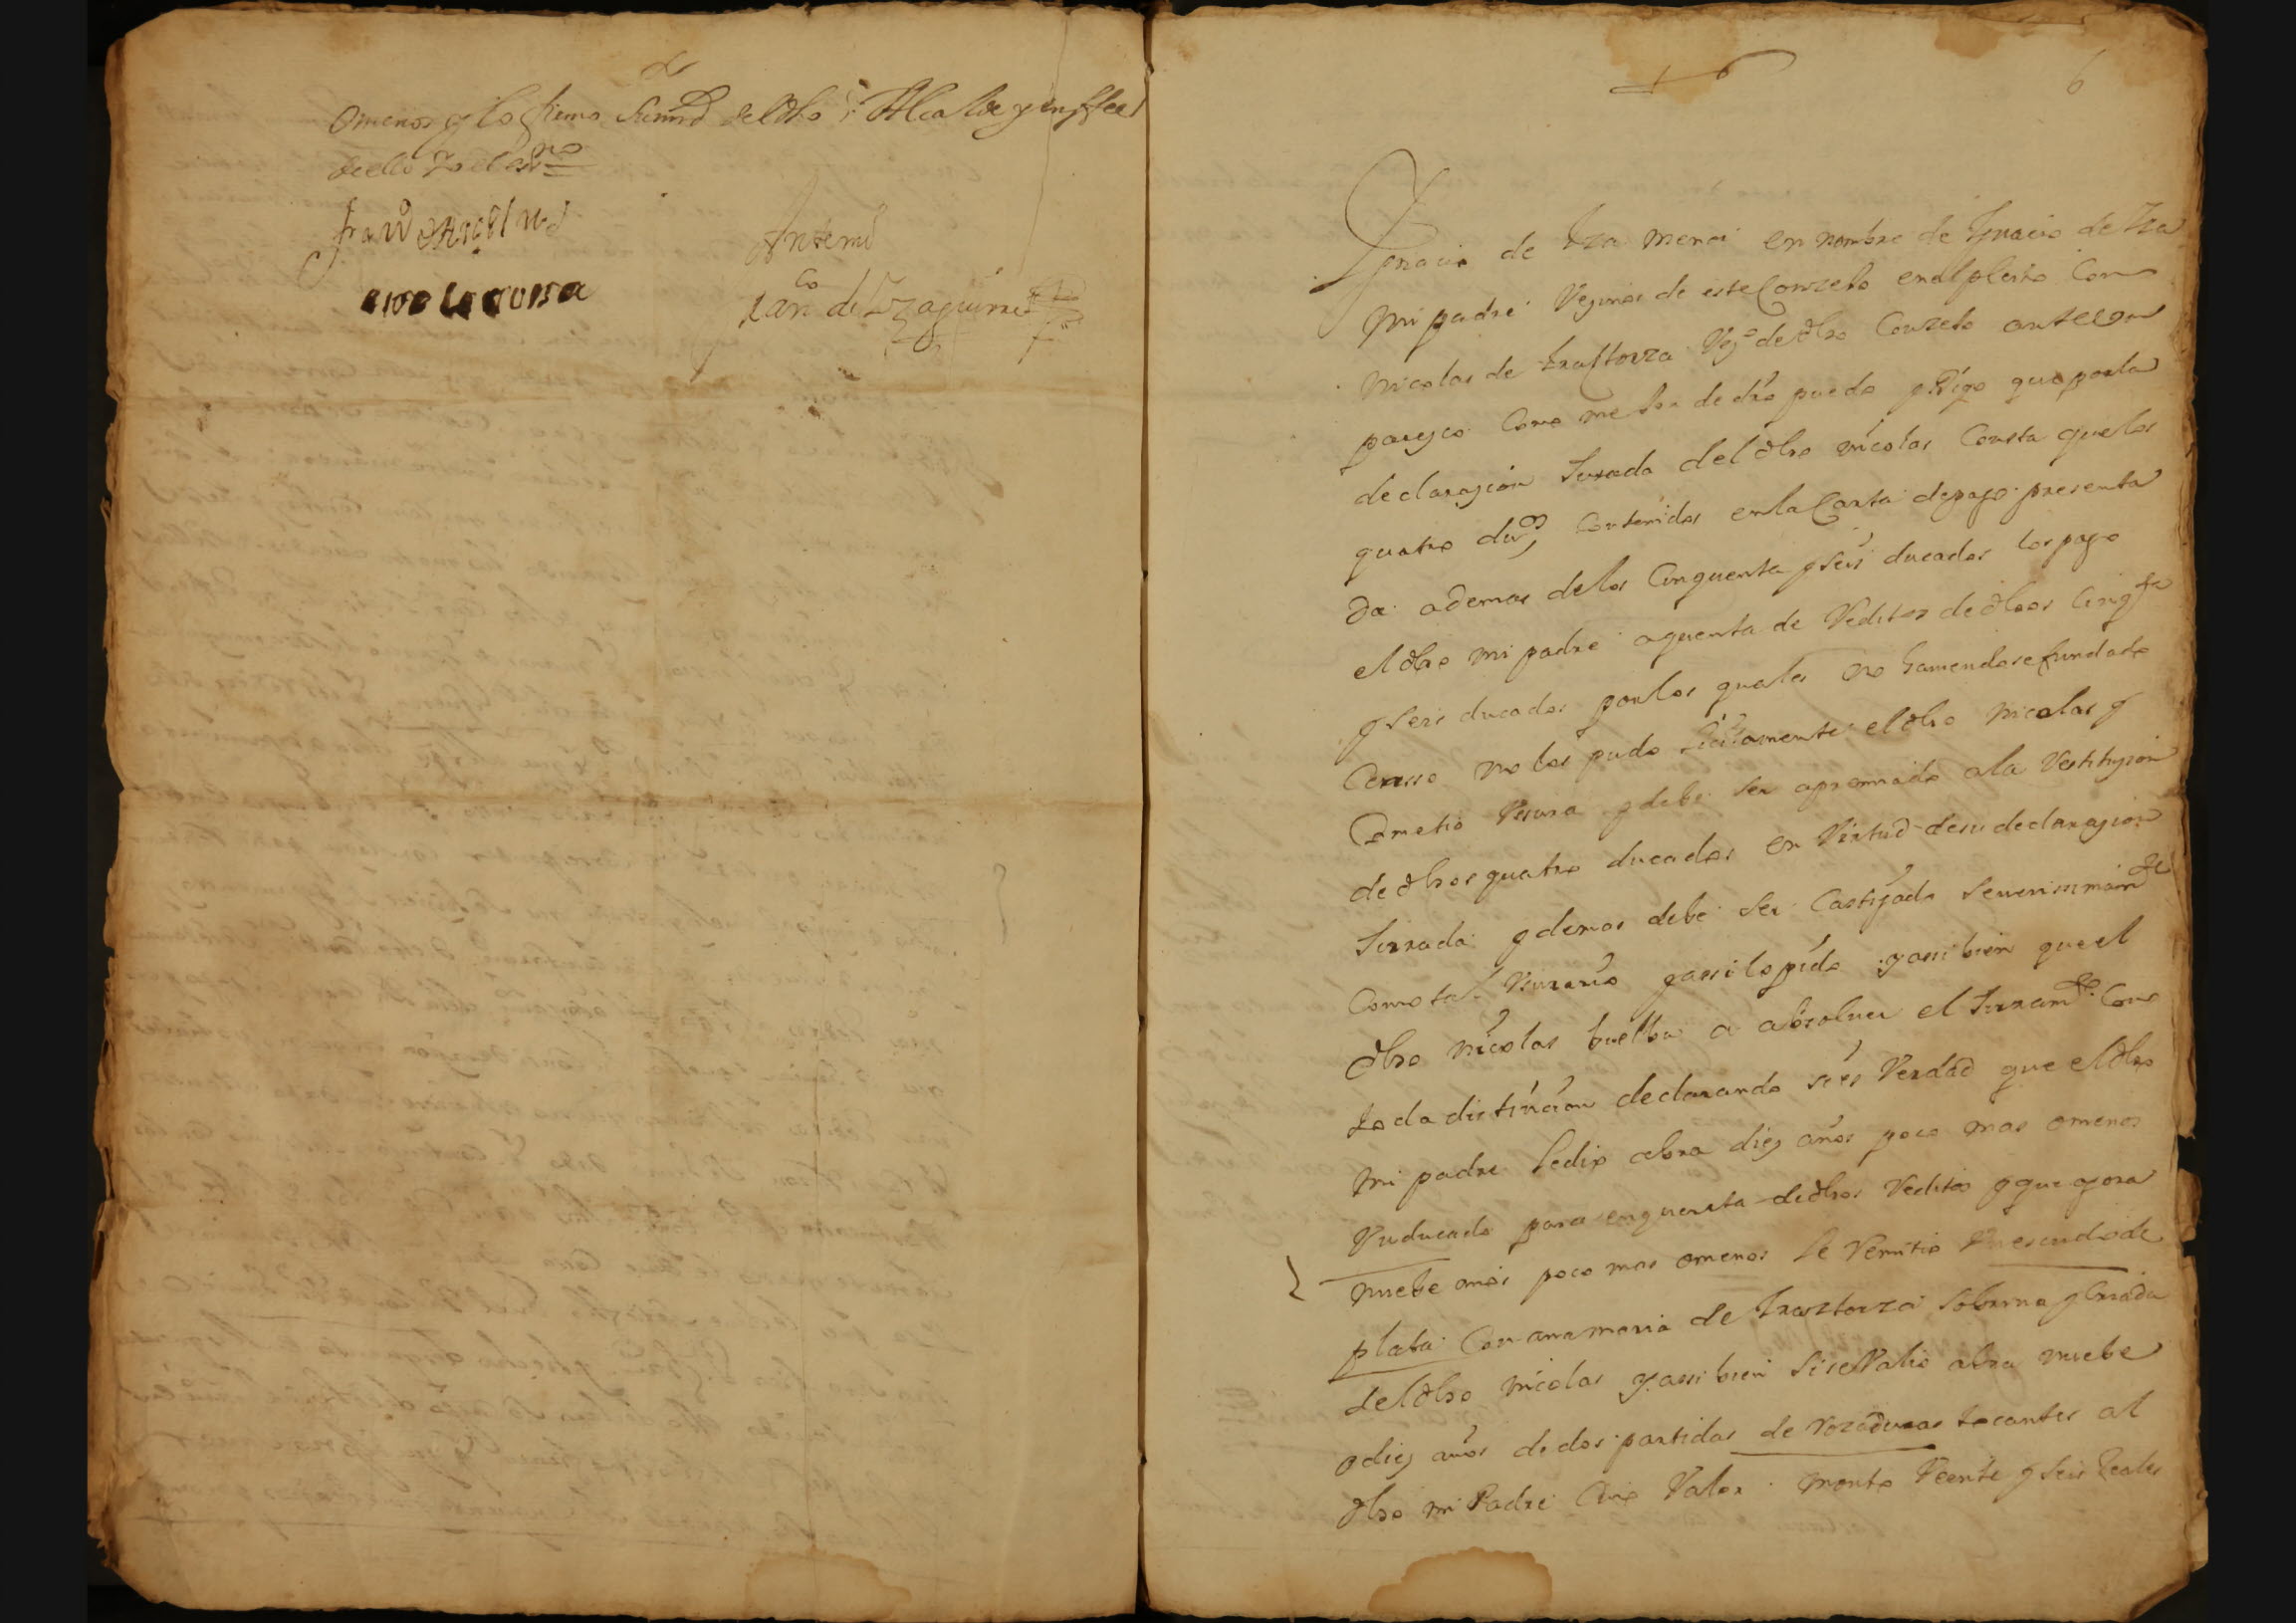 omenos y lo firmo su md del dho s. Alcalde y en ffee
de ello Yo el essno
franco
Ante mi
de Yzaguirre
6
Ygnacio de Yza menor en nombre de Ygnacio de Yza
mi padre Vezinos de este Conzelo en el pleito Con
Nicolas de Yraztorza Vezo de dho Conzelo ante Vm
parezco Como mejor de dro puedo y Digo que por la
declarazion Jurada del dho nicolas Consta que los
quatro dus Contenidos en la Carta de pago presenta
da ademas de los Cinquenta y seis ducados los pago
el dho mi padre a quenta de Reditos de dhos cinqta
y seis ducados por los quales no hauiendose fundado
Censso no los pudo licitamente el dho nicolas y
Cometio Vsura y debe ser apremiado a la Restituzion
de dhos quatro ducados en Virtud de su declarazion
Jurada y demas debe ser Castigado seuerissimamte
Como tal Vsurario y assi lo pido y assi bien que el
dho nicolas buelba a absoluer el Juramto Con
toda distincion declarando si es Verdad que el dho
mi padre le dio abra diez años poco mas omenos
Vn ducado para en quenta de dhos Reditos y que agora
nuebe años poco mas omenos le Remitio Vn escudo de
plata Con ana maria de Yraztorza sobrina y Criada
del dho nicolas y assi bien si se Valio abra nuebe
o diez años de dos partidas de rozaduras tocantes al
dho mi Padre Cuio Valor monto Veente y seis Reales